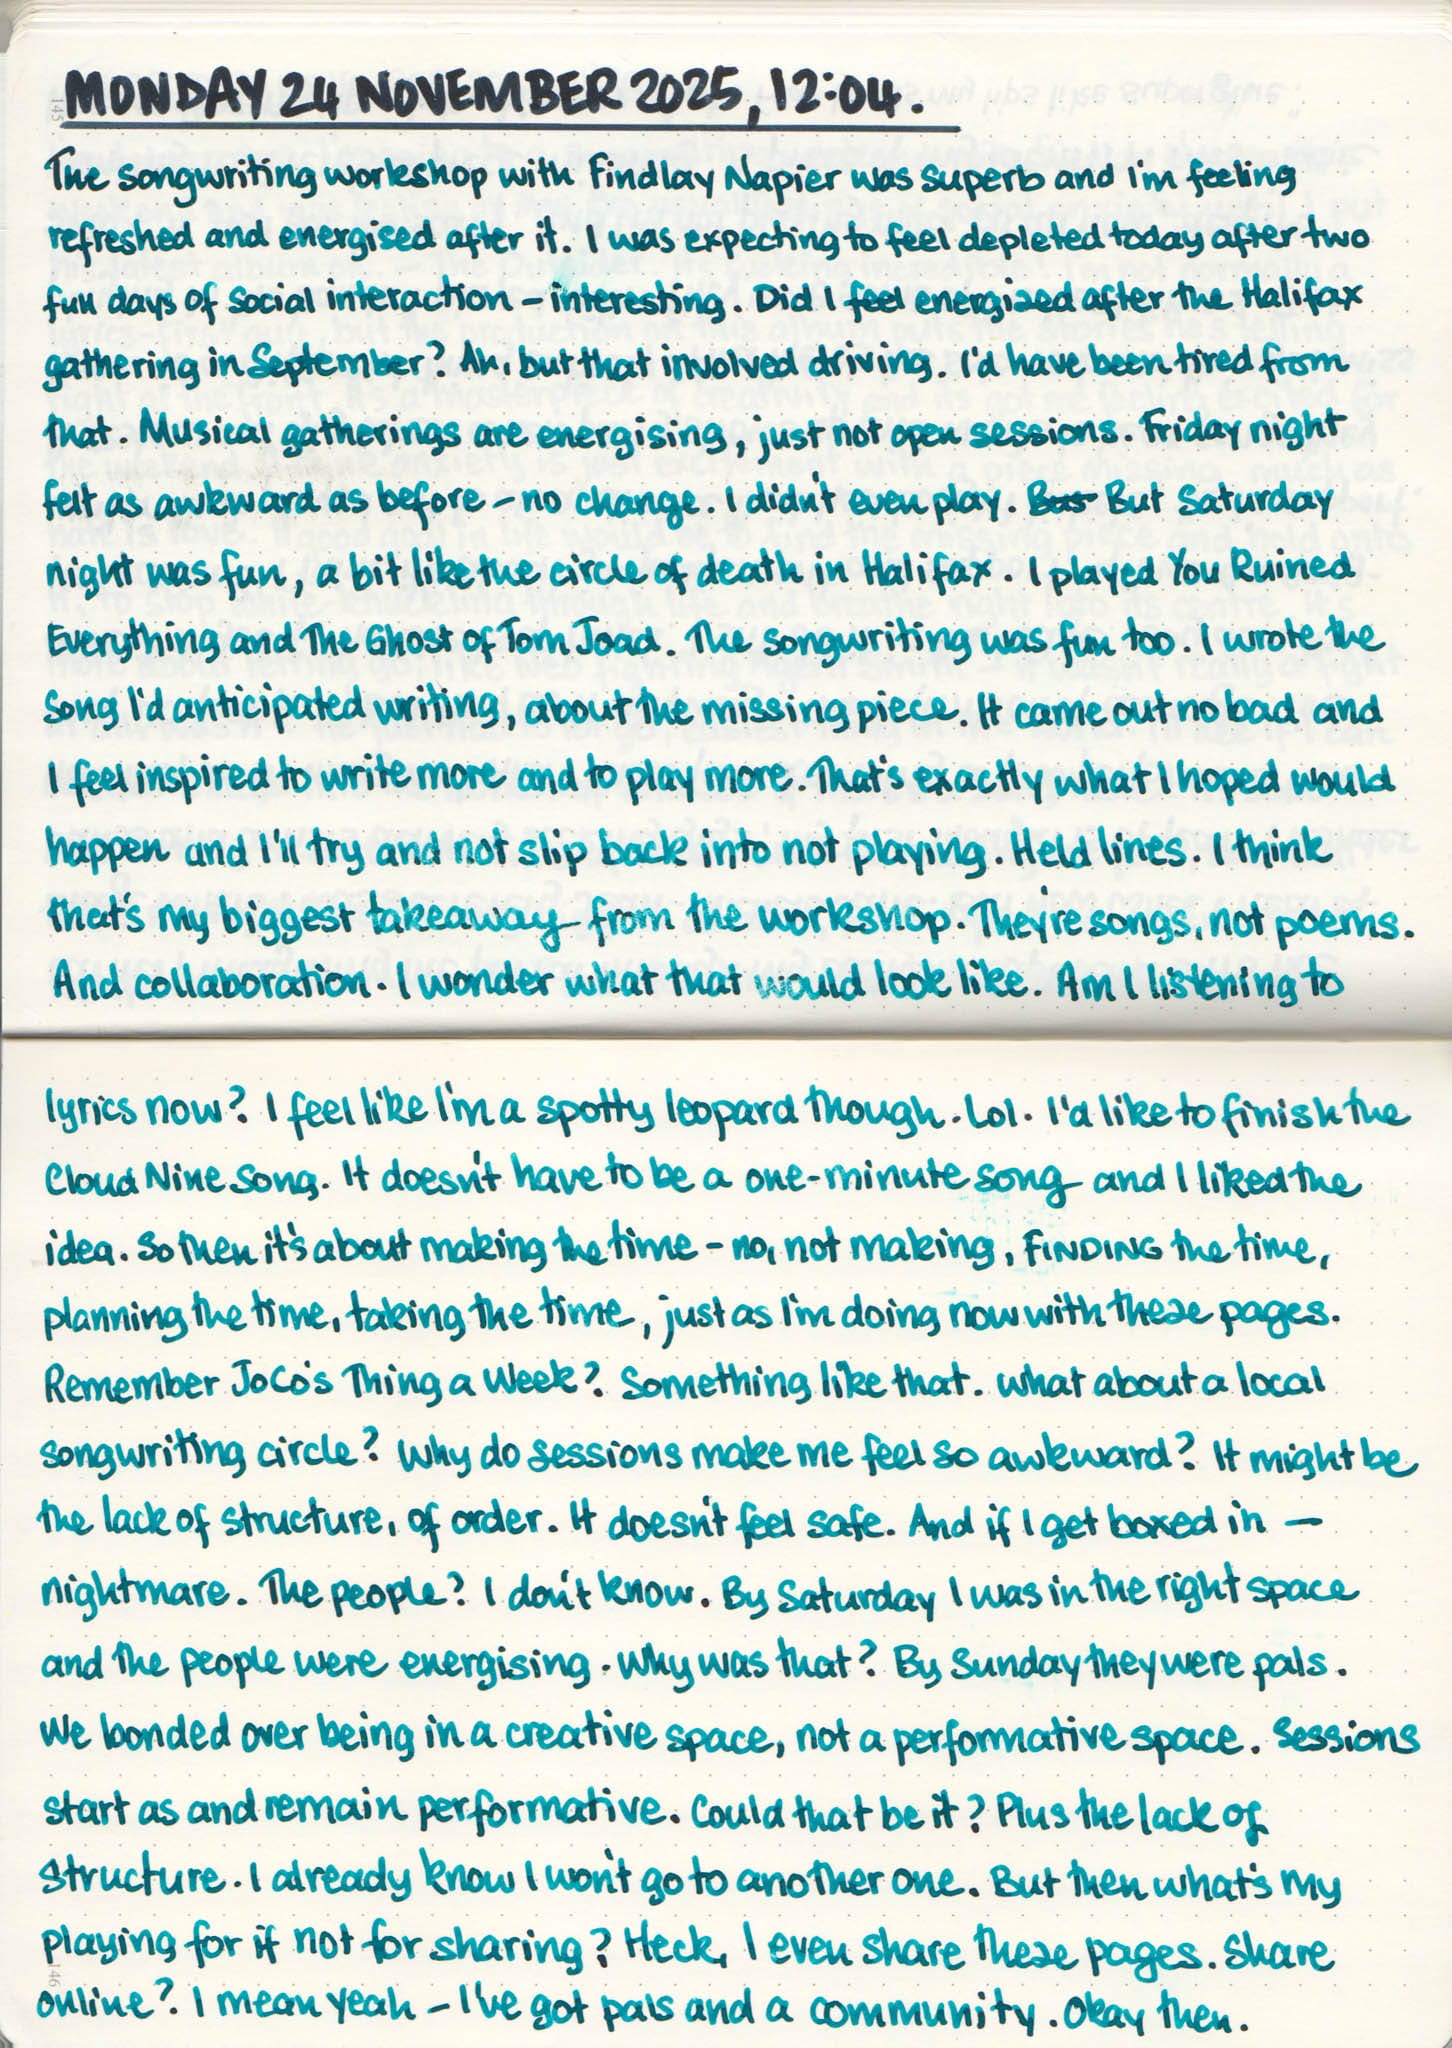 MONDAY 24 NOVEMBER 2025, 12:04.
The songwriting workshop with Findlay Napier was superb and I'm feeling
refreshed and energised after it. I was expecting to feel depleted today after two
fun days of social interaction – interesting. Did I feel energized after the Halifax
gathering in September? Ah, but that involved driving. I'd have been tired from
that. Musical gatherings are energising, just not open sessions. Friday night
felt as awkward as before – no change. I didn't even play. But But Saturday
night was fun, a bit like the circle of death in Halifax. I played You Ruined
Everything and The Ghost of Tom Joad. The songwriting was fun too. I wrote the
song I'd anticipated writing, about the missing piece. It came out no bad and
I feel inspired to write more and to play more. That's exactly what I hoped would
happen and I'll try and not slip back into not playing. Held lines. I think
that's my biggest takeaway from the workshop. They're songs, not poems.
And collaboration. I wonder what that would look like. Am I listening to
lyrics now? I feel like I'm a spotty leopard though. Lol. I'd like to finish the
Cloud Nine song. It doesn't have to be a one-minute song and I liked the
idea. So then it's about making the time – no, not making, FINDING the time,
planning the time, taking the time, just as I'm doing now with these pages.
Remember JoCo's Thing a Week? Something like that. What about a local
songwriting circle? Why do sessions make me feel so awkward? It might be
the lack of structure, of order. It doesn't feel safe. And if I get boxed in –
nightmare. The people? I don't know. By Saturday I was in the right space
and the people were energising. Why was that? By Sunday they were pals.
We bonded over being in a creative space, not a performative space. Sessions
start as and remain performative. Could that be it? Plus the lack of
structure. I already know I won't go to another one. But then what's my
playing for if not for sharing? Heck, I even share these pages. Share
online? I mean yeah – I've got pals and a community. Okay then.
145
146